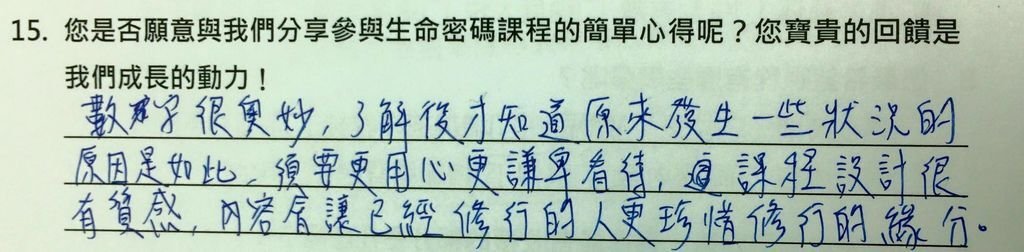 15. 您是否願意與我們分享參與生命密碼課程的簡單心得呢？您寶貴的回饋是
我們成長的動力！
數字很奧妙，了解後才知道原來發生一些狀況的
原因是如此，須要更用心更謙卑看待，這課程設計很
有質感，內容會讓已經修行的人更珍惜修行的緣分。